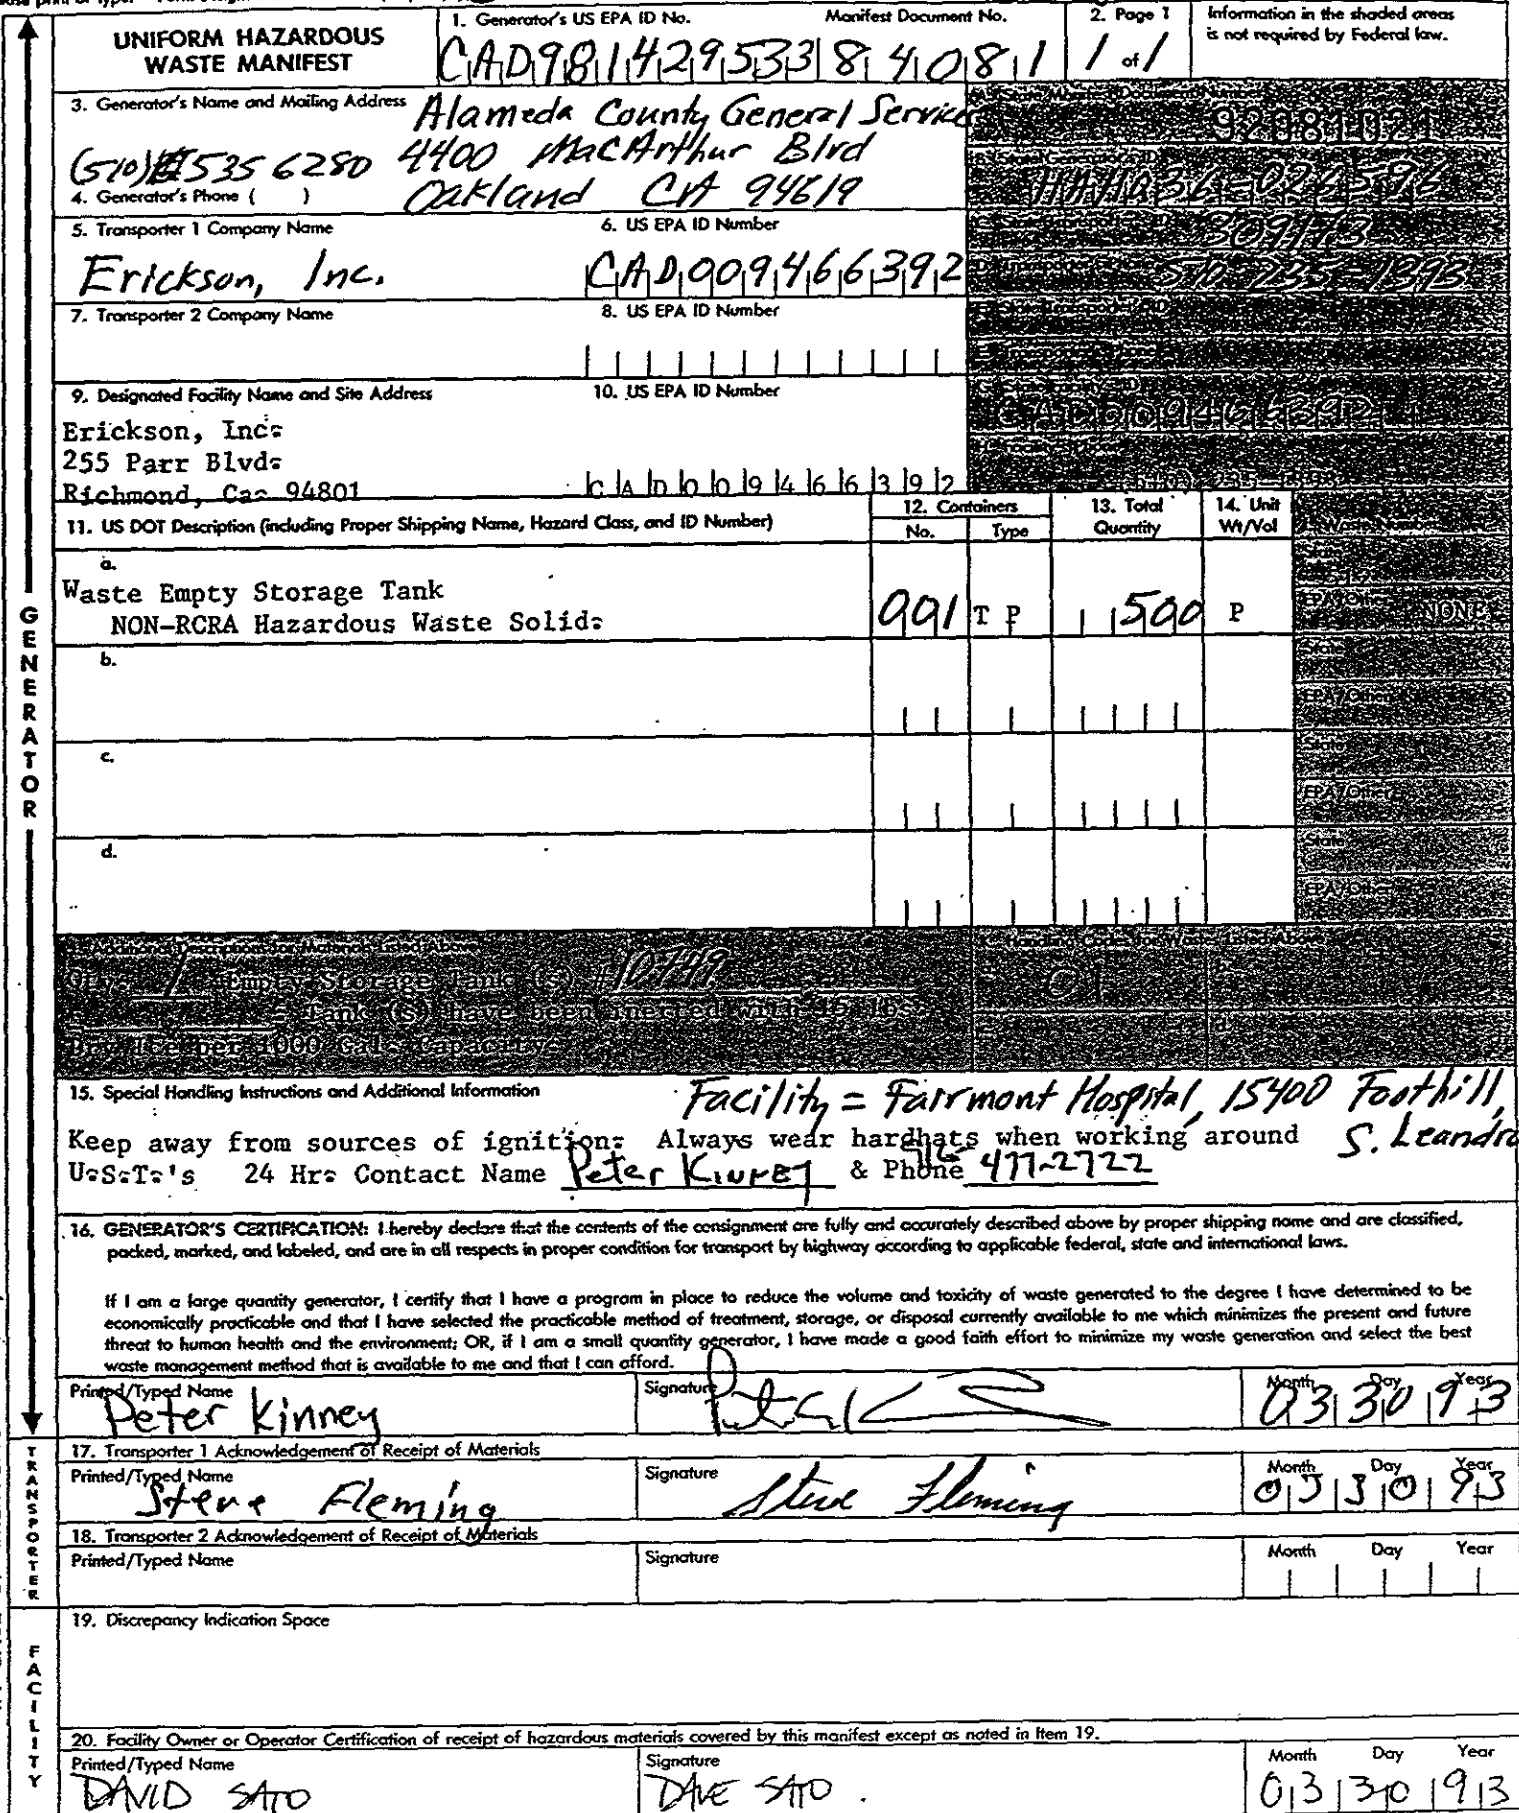 UNIFORM HAZARDOUS
WASTE MANIFEST
1. Generator's US EPA ID No.
Manifest Document No.
CAD981429533 84081
2. Page 1
1 of 1
Information in the shaded areas
is not required by Federal law.
3. Generator's Name and Mailing Address
Alameda County General Services
4400 MacArthur Blvd
Oakland CA 94619
(510) 535 6280
4. Generator's Phone ( )
92081021
5. Transporter 1 Company Name
Erickson, Inc.
6. US EPA ID Number
CAD009466392
7. Transporter 2 Company Name
8. US EPA ID Number
9. Designated Facility Name and Site Address
Erickson, Inc.
255 Parr Blvd.
Richmond, Ca. 94801
10. US EPA ID Number
CAD009466392
11. US DOT Description (including Proper Shipping Name, Hazard Class, and ID Number)
12. Containers
No.
Type
13. Total
Quantity
14. Unit
Wt/Vol
a.
Waste Empty Storage Tank
NON-RCRA Hazardous Waste Solid.
001 T P 500 P
EPA/Other NONE
b.
State
EPA/Other
c.
State
EPA/Other
d.
State
EPA/Other
Additional Descriptions for Materials Listed Above
Qty. 1 Empty Storage Tank (s) # 10799
Tank (s) have been inerted with 15 lbs
Dry Ice per 1000 Gal. Capacity
Handling Codes for Wastes Listed Above
01
15. Special Handling Instructions and Additional Information
Facility = Fairmont Hospital, 15400 Foothill,
S. Leandro
Keep away from sources of ignition. Always wear hardhats when working around
U.S.T.'s 24 Hr. Contact Name Peter Kinney & Phone 477-2722
16. GENERATOR'S CERTIFICATION: I hereby declare that the contents of the consignment are fully and accurately described above by proper shipping name and are classified,
packed, marked, and labeled, and are in all respects in proper condition for transport by highway according to applicable federal, state and international laws.
If I am a large quantity generator, I certify that I have a program in place to reduce the volume and toxicity of waste generated to the degree I have determined to be
economically practicable and that I have selected the practicable method of treatment, storage, or disposal currently available to me which minimizes the present and future
threat to human health and the environment; OR, if I am a small quantity generator, I have made a good faith effort to minimize my waste generation and select the best
waste management method that is available to me and that I can afford.
Printed/Typed Name
Peter Kinney
Signature
Month Day Year
03 30 93
17. Transporter 1 Acknowledgement of Receipt of Materials
Printed/Typed Name
Steve Fleming
Signature
Steve Fleming
Month Day Year
03 30 93
18. Transporter 2 Acknowledgement of Receipt of Materials
Printed/Typed Name
Signature
Month Day Year
19. Discrepancy Indication Space
20. Facility Owner or Operator Certification of receipt of hazardous materials covered by this manifest except as noted in Item 19.
Printed/Typed Name
DAVID SATO
Signature
DAVE SATO.
Month Day Year
03 30 93
GENERATOR
TRANSPORTER
FACILITY